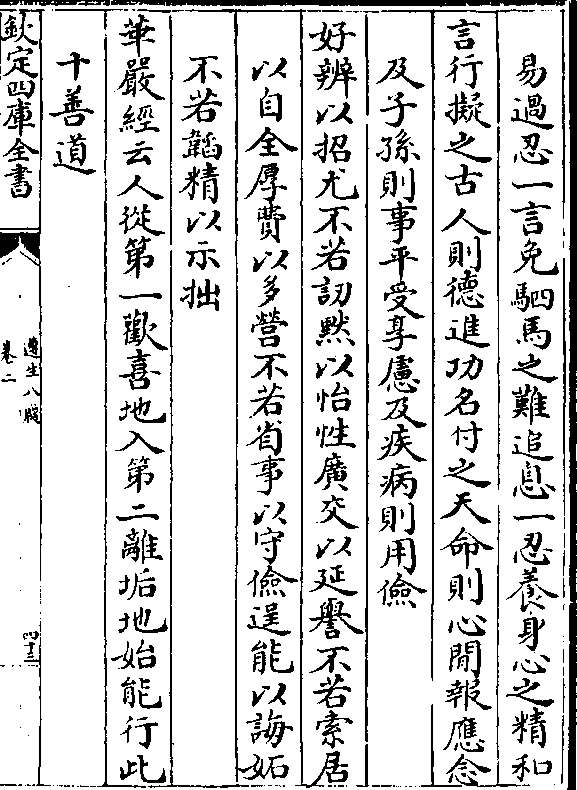 易過忍一言免駟馬之難追息一忍養身心之精和
言行擬之古人則德進功名付之天命則心閒報應念
及子孫則事平受享慮及疾病則用儉
好辨以招尤不若訒黙以怡性廣交以延譽不若索居
以自全厚費以多營不若省事以守儉逞能以誨妬
不若韜精以示拙
華嚴經云人從第一歡喜地入第二離垢地始能行此
十善道
欽定四庫全書
遵生八牋
卷二
四十三